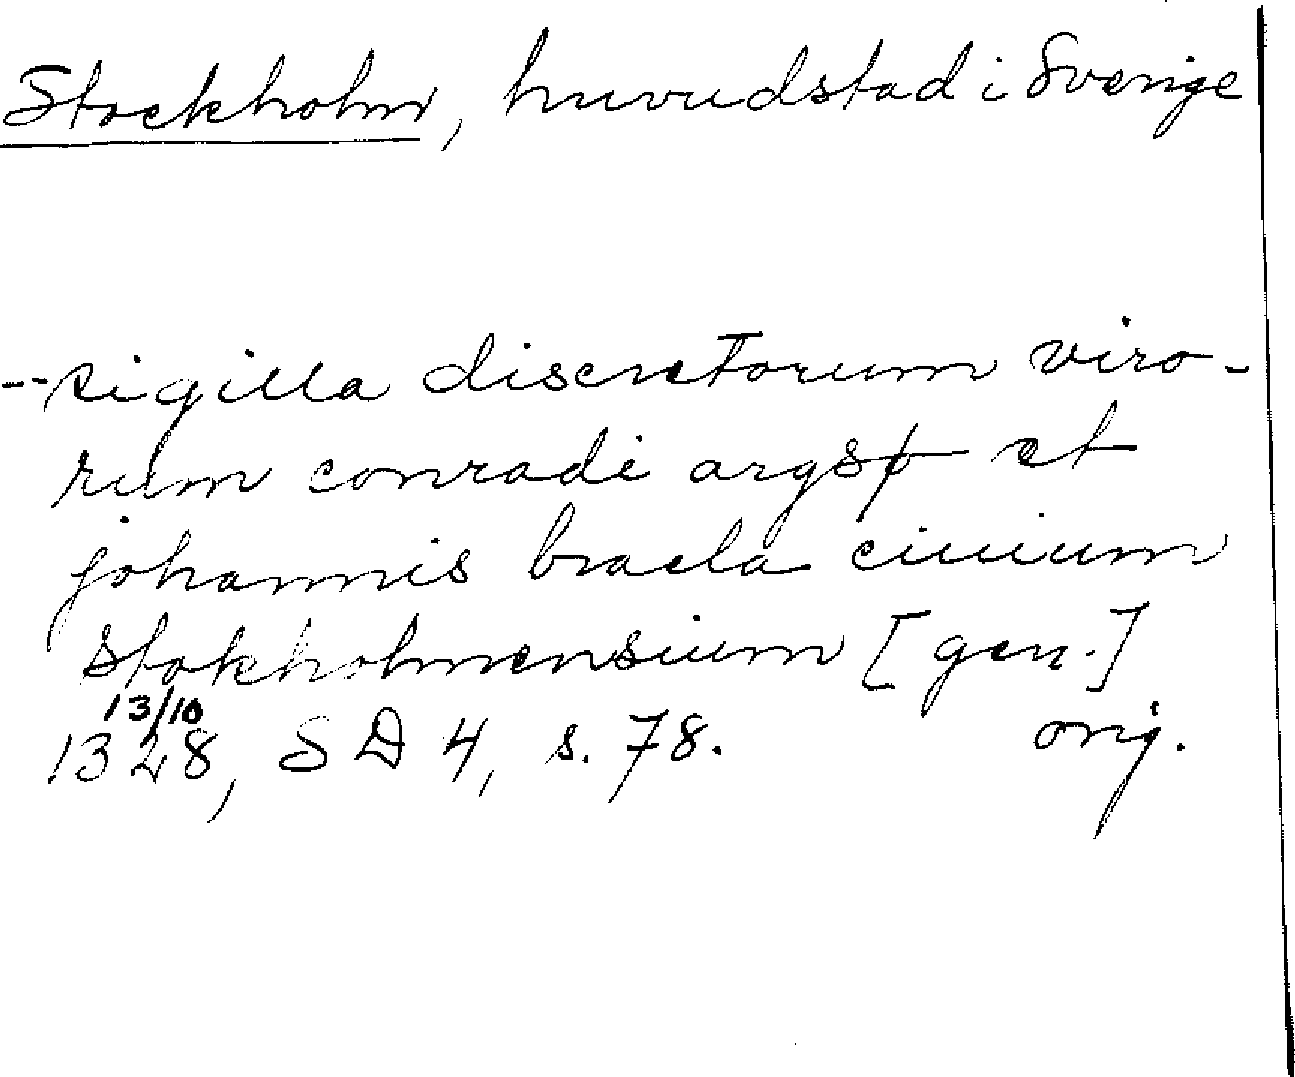 Stockholm, huvudstad i Sverige
-- sigilla discretorum viro-
rum conradi et
johannis braela ciuium
stokholmensium [gen.]
13/10
1328, SD 4, s. 78. orig.